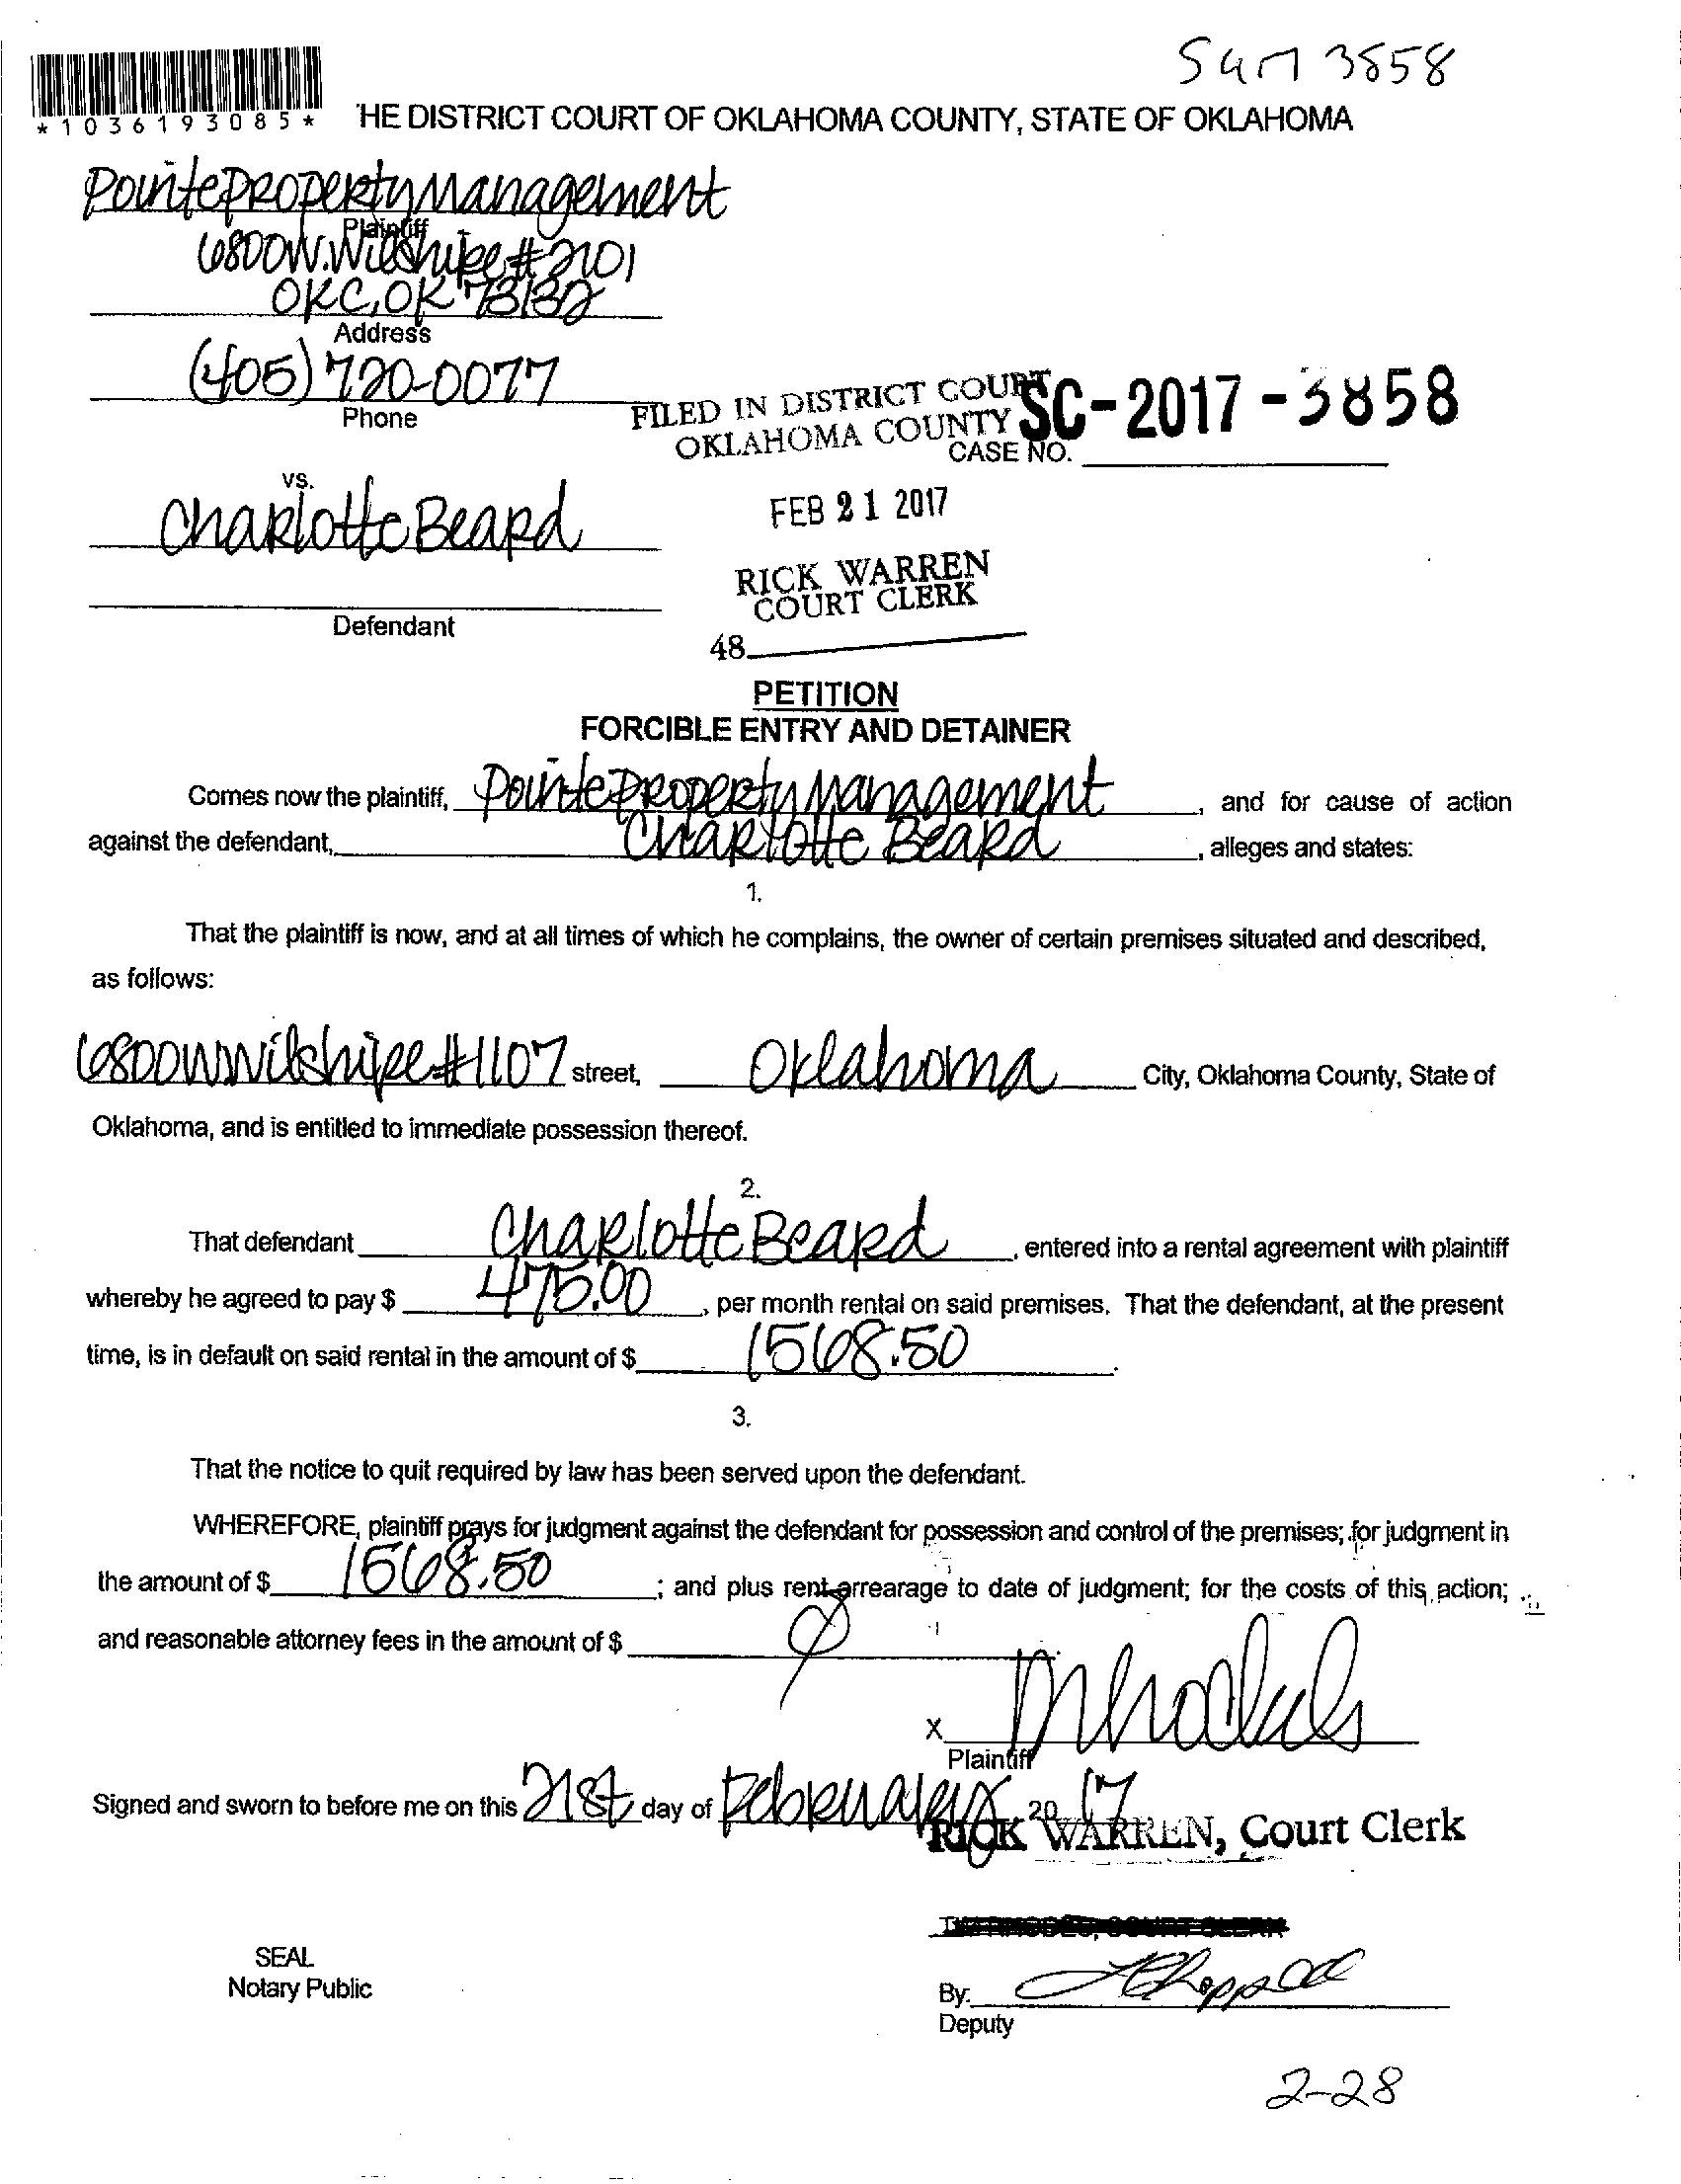 3858
*1036193085*
HE DISTRICT COURT OF OKLAHOMA COUNTY, STATE OF OKLAHOMA
Pointe Property Management
Plaintiff
6800 W. Wilshire #2101
OKC, OK 73132
Address
(405) 720-0077
Phone
FILED IN DISTRICT COURT
OKLAHOMA COUNTY
SC-2017-3858
CASE NO.
vs.
Charlotte Beard
FEB 21 2017
RICK WARREN
COURT CLERK
Defendant
48
PETITION
FORCIBLE ENTRY AND DETAINER
Comes now the plaintiff, Pointe Property Management, and for cause of action
against the defendant, Charlotte Beard, alleges and states:
1.
That the plaintiff is now, and at all times of which he complains, the owner of certain premises situated and described,
as follows:
6800 W Wilshire #1107 street, Oklahoma City, Oklahoma County, State of
Oklahoma, and is entitled to immediate possession thereof.
2.
That defendant Charlotte Beard, entered into a rental agreement with plaintiff
whereby he agreed to pay $ 475.00, per month rental on said premises. That the defendant, at the present
time, is in default on said rental in the amount of $ 1568.50.
3.
That the notice to quit required by law has been served upon the defendant.
WHEREFORE, plaintiff prays for judgment against the defendant for possession and control of the premises; for judgment in
the amount of $ 1568.50; and plus rent arrearage to date of judgment; for the costs of this action;
and reasonable attorney fees in the amount of $
x
Plaintiff
Signed and sworn to before me on this 21st day of February, 20 17
RICK WARREN, Court Clerk
SEAL
Notary Public
By:
Deputy
2-28